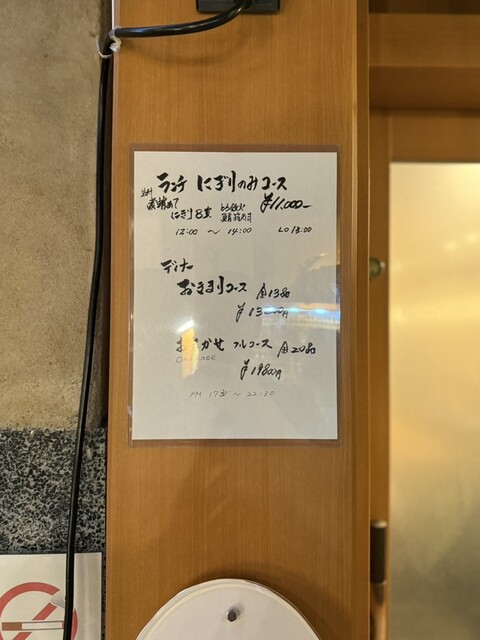 ランチ にぎりのみコース
にぎり8貫 ¥11.000-
12:00 〜 14:00 LO 13:00
ディナー
おきまりコース 全13品
おまかせ フルコース 全20品
¥19800円
PM 17:30 〜 22:30